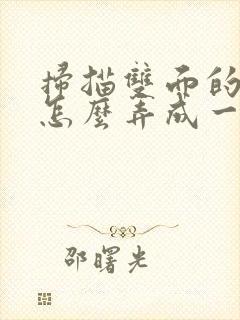 掃描雙面的
怎麼弄成一
邵曙光